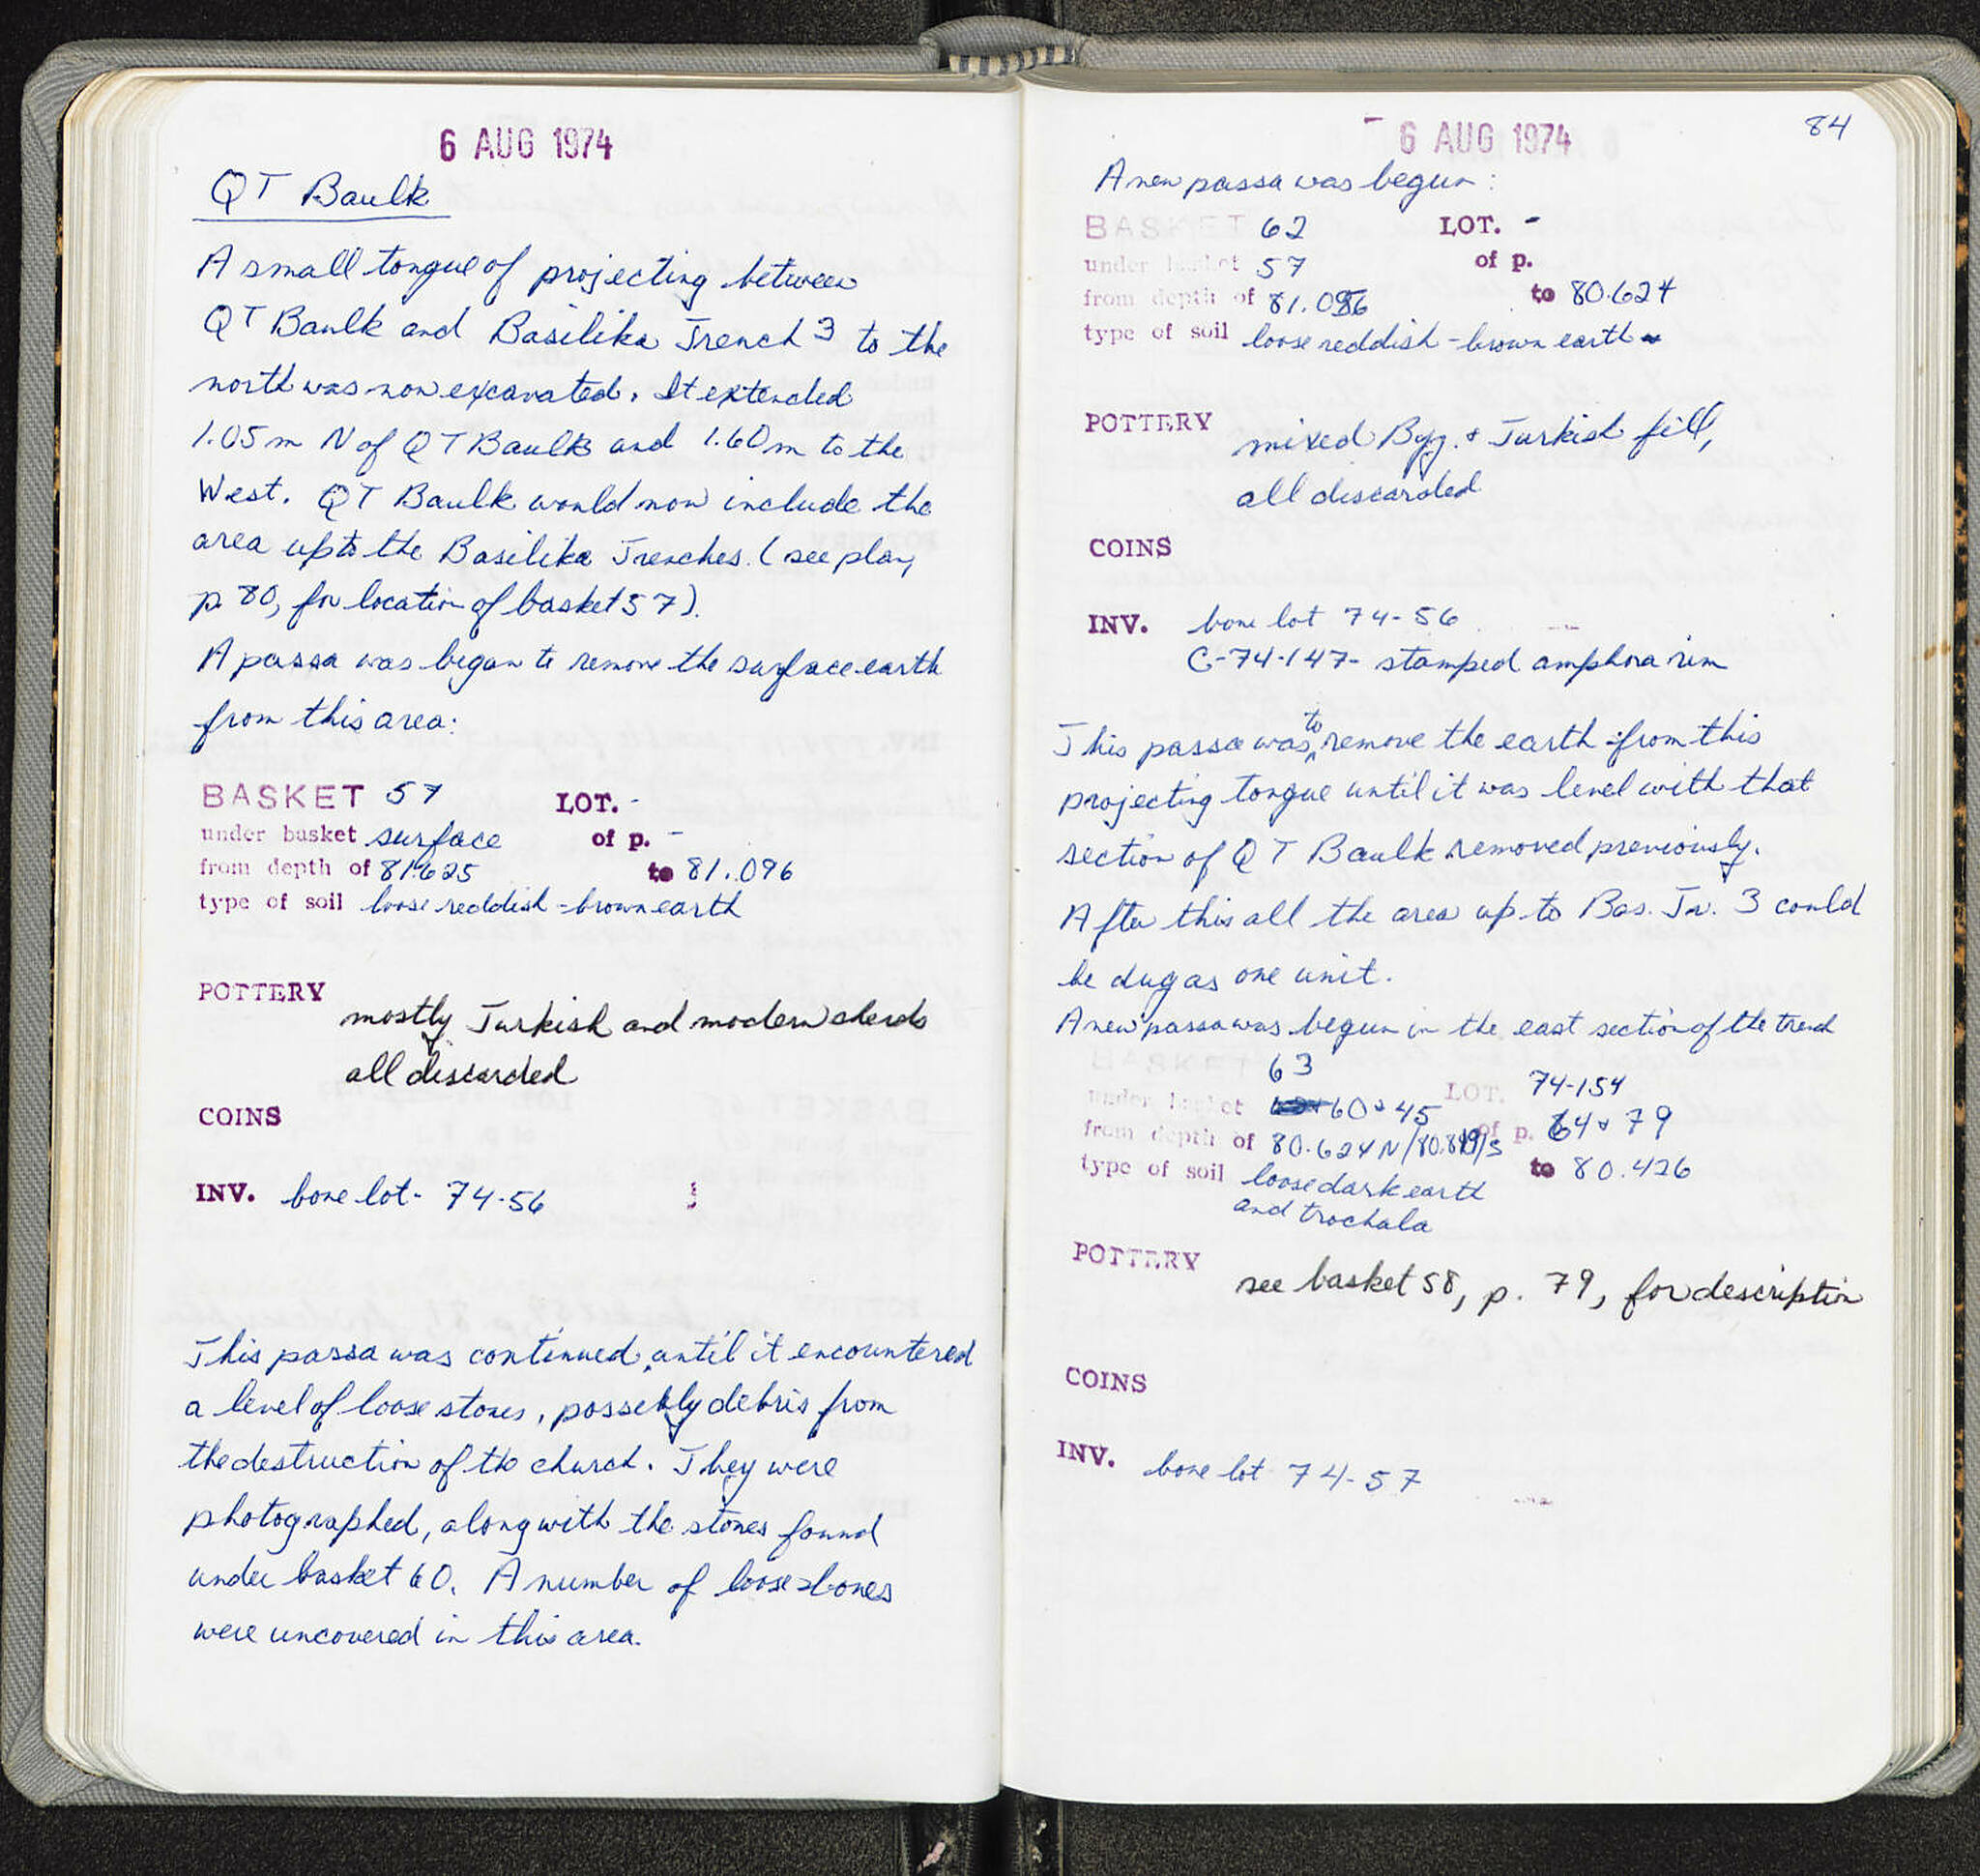 6 AUG 1974
QT Baulk
A small tongue of projecting between
QT Baulk and Basilika Trench 3 to the
north was now excavated. It extended
1.05 m N of QT Baulk and 1.60 m to the
West. QT Baulk would now include the
area up to the Basilika Trenches. (see plan,
p. 80, for location of basket 57).
A passa was began to remove the surface earth
from this area:
BASKET 57 LOT. -
under basket surface of p. -
from depth of 81.625 to 81.096
type of soil loose reddish-brown earth
POTTERY
mostly Turkish and modern sherds
all discarded
COINS
INV. bone lot - 74-56
This passa was continued until it encountered
a level of loose stones, possibly debris from
the destruction of the church. They were
photographed, along with the stones found
under basket 60. A number of loose bones
were uncovered in this area.
84
- 6 AUG 1974
A new passa was begun:
BASKET 62 LOT. -
under basket 57 of p.
from depth of 81.096 to 80.624
type of soil loose reddish-brown earth
POTTERY mixed Byz. + Turkish fill,
all discarded
COINS
INV. bone lot 74-56
C-74-147- stamped amphora rim
This passa was to remove the earth from this
projecting tongue until it was level with that
section of QT Baulk removed previously.
After this all the area up to Bas. Tr. 3 could
be dug as one unit.
A new passa was begun in the east section of the trench
63 LOT. 74-154
under basket 60 + 45 of p. 64 + 79
from depth of 80.624 N/80.819/S to 80.426
type of soil loose dark earth
and trochala
POTTERY
see basket 58, p. 79, for description
COINS
INV. bone lot 74-57